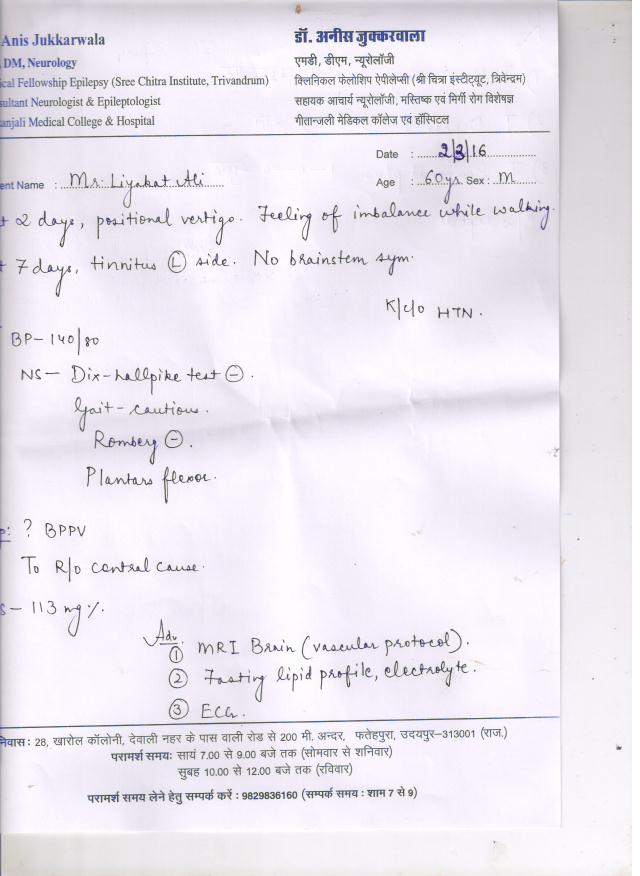 Anis Jukkarwala
डॉ. अनीस जुक्करवाला
DM, Neurology
एमडी, डीएम, न्यूरोलॉजी
ical Fellowship Epilepsy (Sree Chitra Institute, Trivandrum)
क्लिनिकल फेलोशिप ऐपीलेप्सी (श्री चित्रा इंस्टीट्यूट, त्रिवेन्द्रम)
sultant Neurologist & Epileptologist
सहायक आचार्य न्यूरोलॉजी, मस्तिष्क एवं मिर्गी रोग विशेषज्ञ
anjali Medical College & Hospital
गीतान्जली मेडिकल कॉलेज एवं हॉस्पिटल
Date : 2/3/16
ent Name : Mr. Liyakat Ali
Age : 60yr Sex : M
2 days, positional vertigo. Feeling of imbalance while walking.
7 days, tinnitus (L) side. No brainstem sym.
K/c/o HTN.
BP- 140/80
NS- Dix-hallpike test ⊖.
Gait- cautious.
Romberg ⊖.
Plantars flexor.
? BPPV
To R/o central cause.
S - 113 mg%.
Adv.
① MRI Brain (vascular protocol).
② Fasting lipid profile, electrolyte.
③ ECG.
निवास : 28, खारोल कॉलोनी, देवाली नहर के पास वाली रोड से 200 मी. अन्दर, फतेहपुरा, उदयपुर–313001 (राज.)
परामर्श समयः सायं 7.00 से 9.00 बजे तक (सोमवार से शनिवार)
सुबह 10.00 से 12.00 बजे तक (रविवार)
परामर्श समय लेने हेतु सम्पर्क करें : 9829836160 (सम्पर्क समय : शाम 7 से 9)